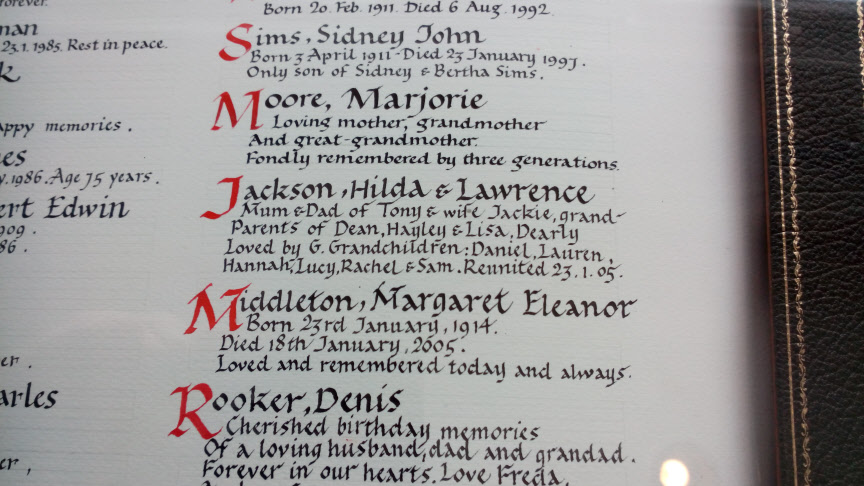 forever.
23.1.1985. Rest in peace.
appy memories.
1986. Age 75 years.
ert Edwin
1909.
86.
er.
arles
er,
Born 20. Feb. 1911. Died 6 Aug. 1992.
Sims, Sidney John
Born 3 April 1911 - Died 23 January 1997.
Only son of Sidney & Bertha Sims.
Moore, Marjorie
Loving mother, grandmother
And great-grandmother.
Fondly remembered by three generations.
Jackson, Hilda & Lawrence
Mum & Dad of Tony & wife Jackie, grand-
Parents of Dean, Hayley & Lisa. Dearly
Loved by G. Grandchildren: Daniel, Lauren,
Hannah, Lucy, Rachel & Sam. Reunited 23.1.05.
Middleton, Margaret Eleanor
Born 23rd January, 1914.
Died 18th January, 2005.
Loved and remembered today and always.
Rooker, Denis
Cherished birthday memories
Of a loving husband, dad and grandad.
Forever in our hearts. Love Freda,